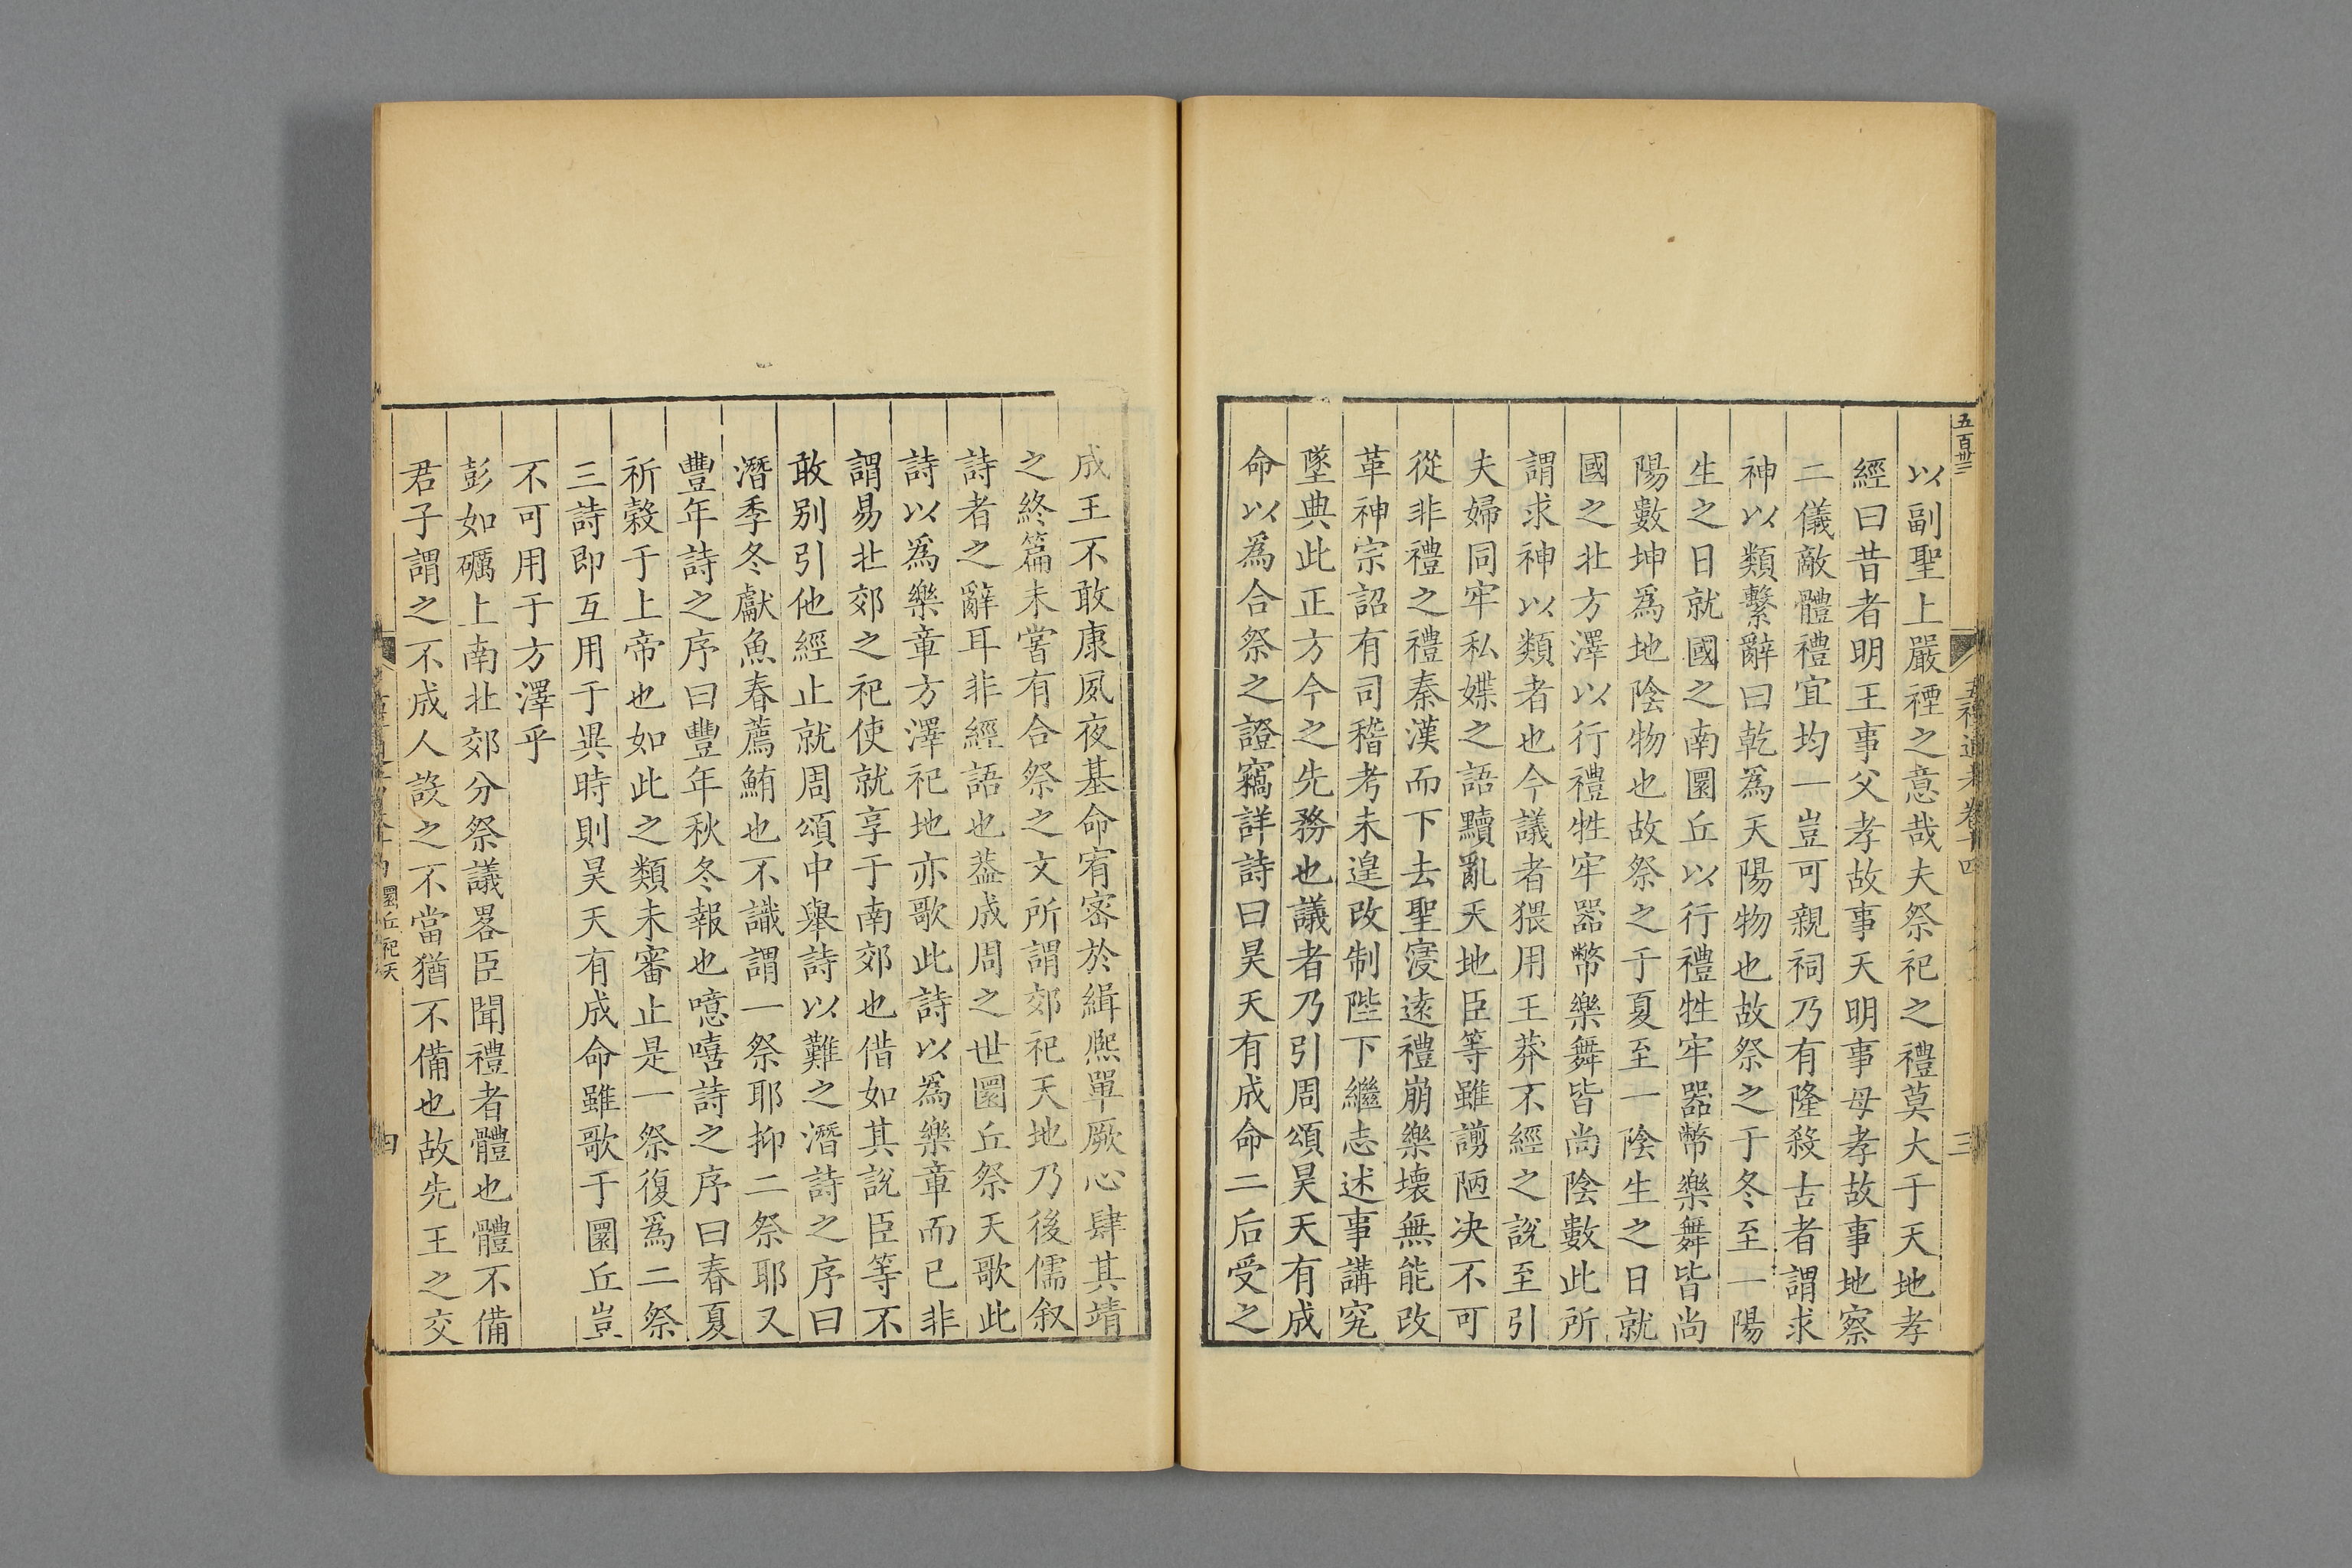 五百卅三
五禮通考卷十四
三
以副聖上嚴禋之意哉夫祭祀之禮莫大于天地孝
經曰昔者明王事父孝故事天明事母孝故事地察
二儀敵體禮宜均一豈可親祠乃有隆殺古者謂求
神以類繫辭曰乾爲天陽物也故祭之于冬至一陽
生之日就國之南圜丘以行禮牲牢器幣樂舞皆尚
陽數坤爲地陰物也故祭之于夏至一陰生之日就
國之北方澤以行禮牲牢器幣樂舞皆尚陰數此所
謂求神以類者也今議者猥用王莽不經之說至引
夫婦同牢私媟之語黷亂天地臣等雖謭陋决不可
從非禮之禮秦漢而下去聖寖遠禮崩樂壞無能改
革神宗詔有司稽考未遑改制陛下繼志述事講究
墜典此正方今之先務也議者乃引周頌昊天有成
命以爲合祭之證竊詳詩曰昊天有成命二后受之
成王不敢康夙夜基命宥密於緝熙單厥心肆其靖
之終篇未嘗有合祭之文所謂郊祀天地乃後儒叙
詩者之辭耳非經語也葢成周之世圜丘祭天歌此
詩以爲樂章方澤祀地亦歌此詩以爲樂章而已非
謂易北郊之祀使就享于南郊也偕如其說臣等不
敢別引他經止就周頌中舉詩以難之潛詩之序曰
潛季冬獻魚春薦鮪也不識謂一祭耶抑二祭耶又
豐年詩之序曰豐年秋冬報也噫嘻詩之序曰春夏
祈穀于上帝也如此之類未審止是一祭復爲二祭
三詩即互用于異時則昊天有成命雖歌于圜丘豈
不可用于方澤乎
彭如礪上南北郊分祭議畧臣聞禮者體也體不備
君子謂之不成人設之不當猶不備也故先王之交
圜丘祀天
四